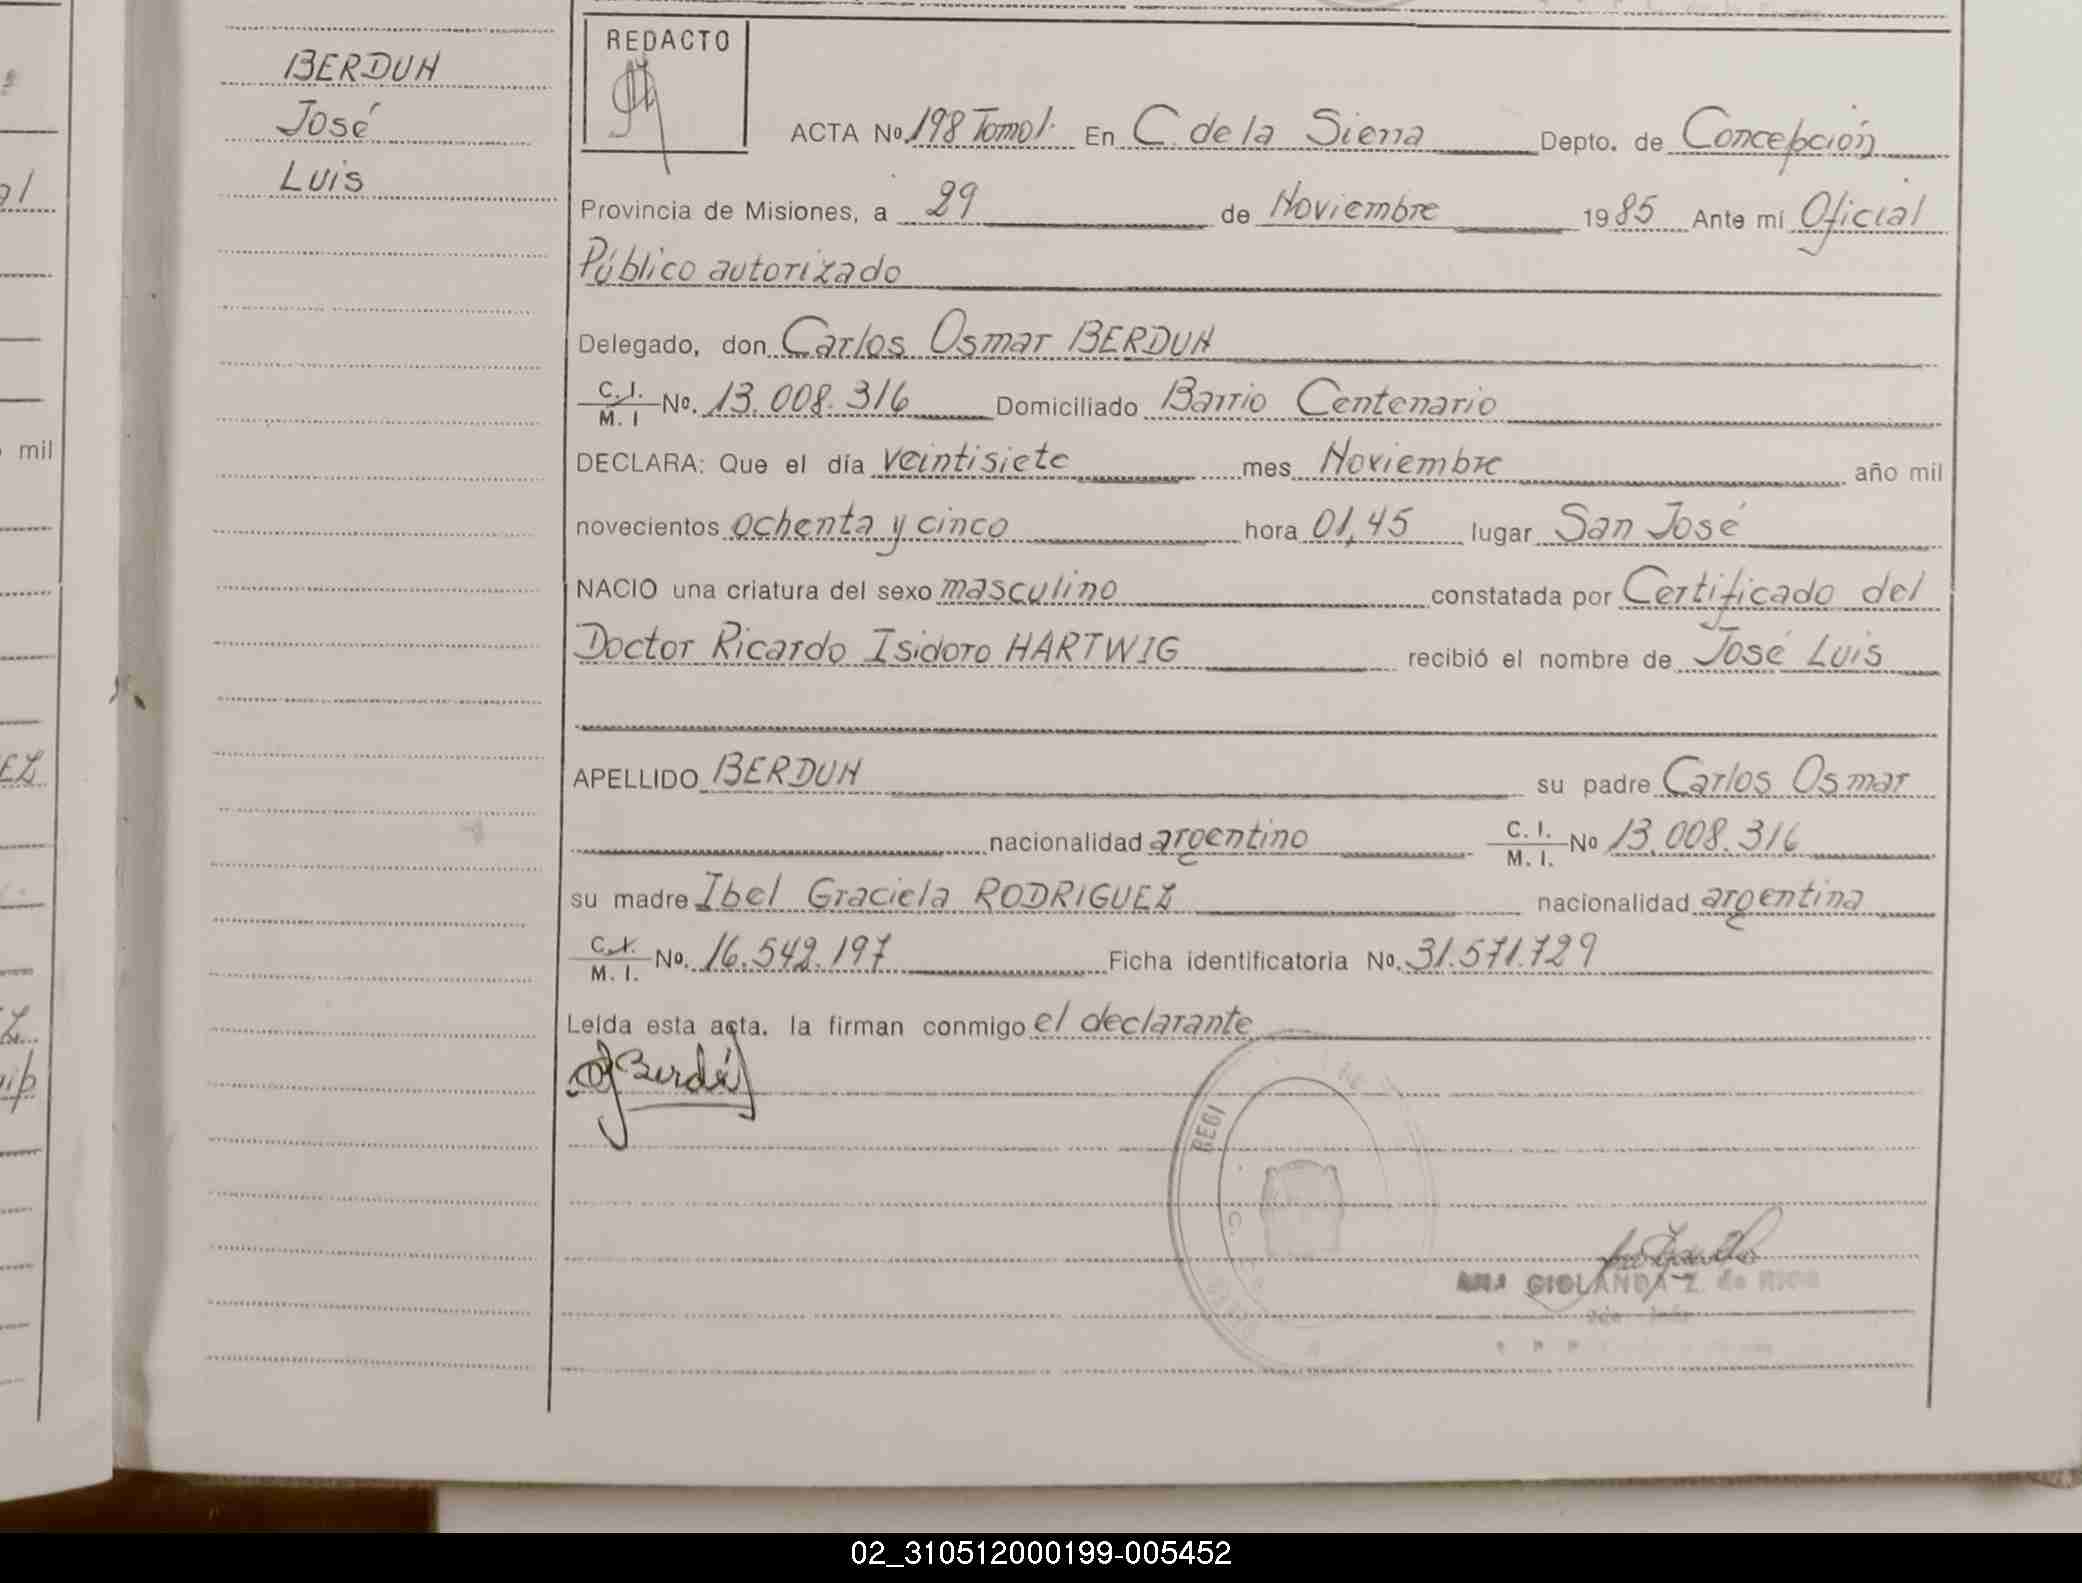 BERDUN
José
Luis
REDACTO
ACTA No. 198 Tomo I. En C. de la Sierra Depto. de Concepción
Provincia de Misiones, a 29 de Noviembre 1985 Ante mí Oficial
Público autorizado
Delegado, don Carlos Osmar BERDUN
C. I. M. I No. 13.008.316 Domiciliado Barrio Centenario
DECLARA: Que el día veintisiete mes Noviembre año mil
novecientos ochenta y cinco hora 01,45 lugar San José
NACIO una criatura del sexo masculino constatada por Certificado del
Doctor Ricardo Isidoro HARTWIG recibió el nombre de José Luis
APELLIDO BERDUN su padre Carlos Osmar
nacionalidad argentino C. I. M. I. No 13.008.316
su madre Ibel Graciela RODRIGUEZ nacionalidad argentina
C. I. M. I. No. 16.542.197 Ficha identificatoria No. 31.571.729
Leída esta acta, la firman conmigo el declarante
Berdún
REGI
GIOLANDA Z. de RIOS
al
mil
EZ
Z
02_310512000199-005452